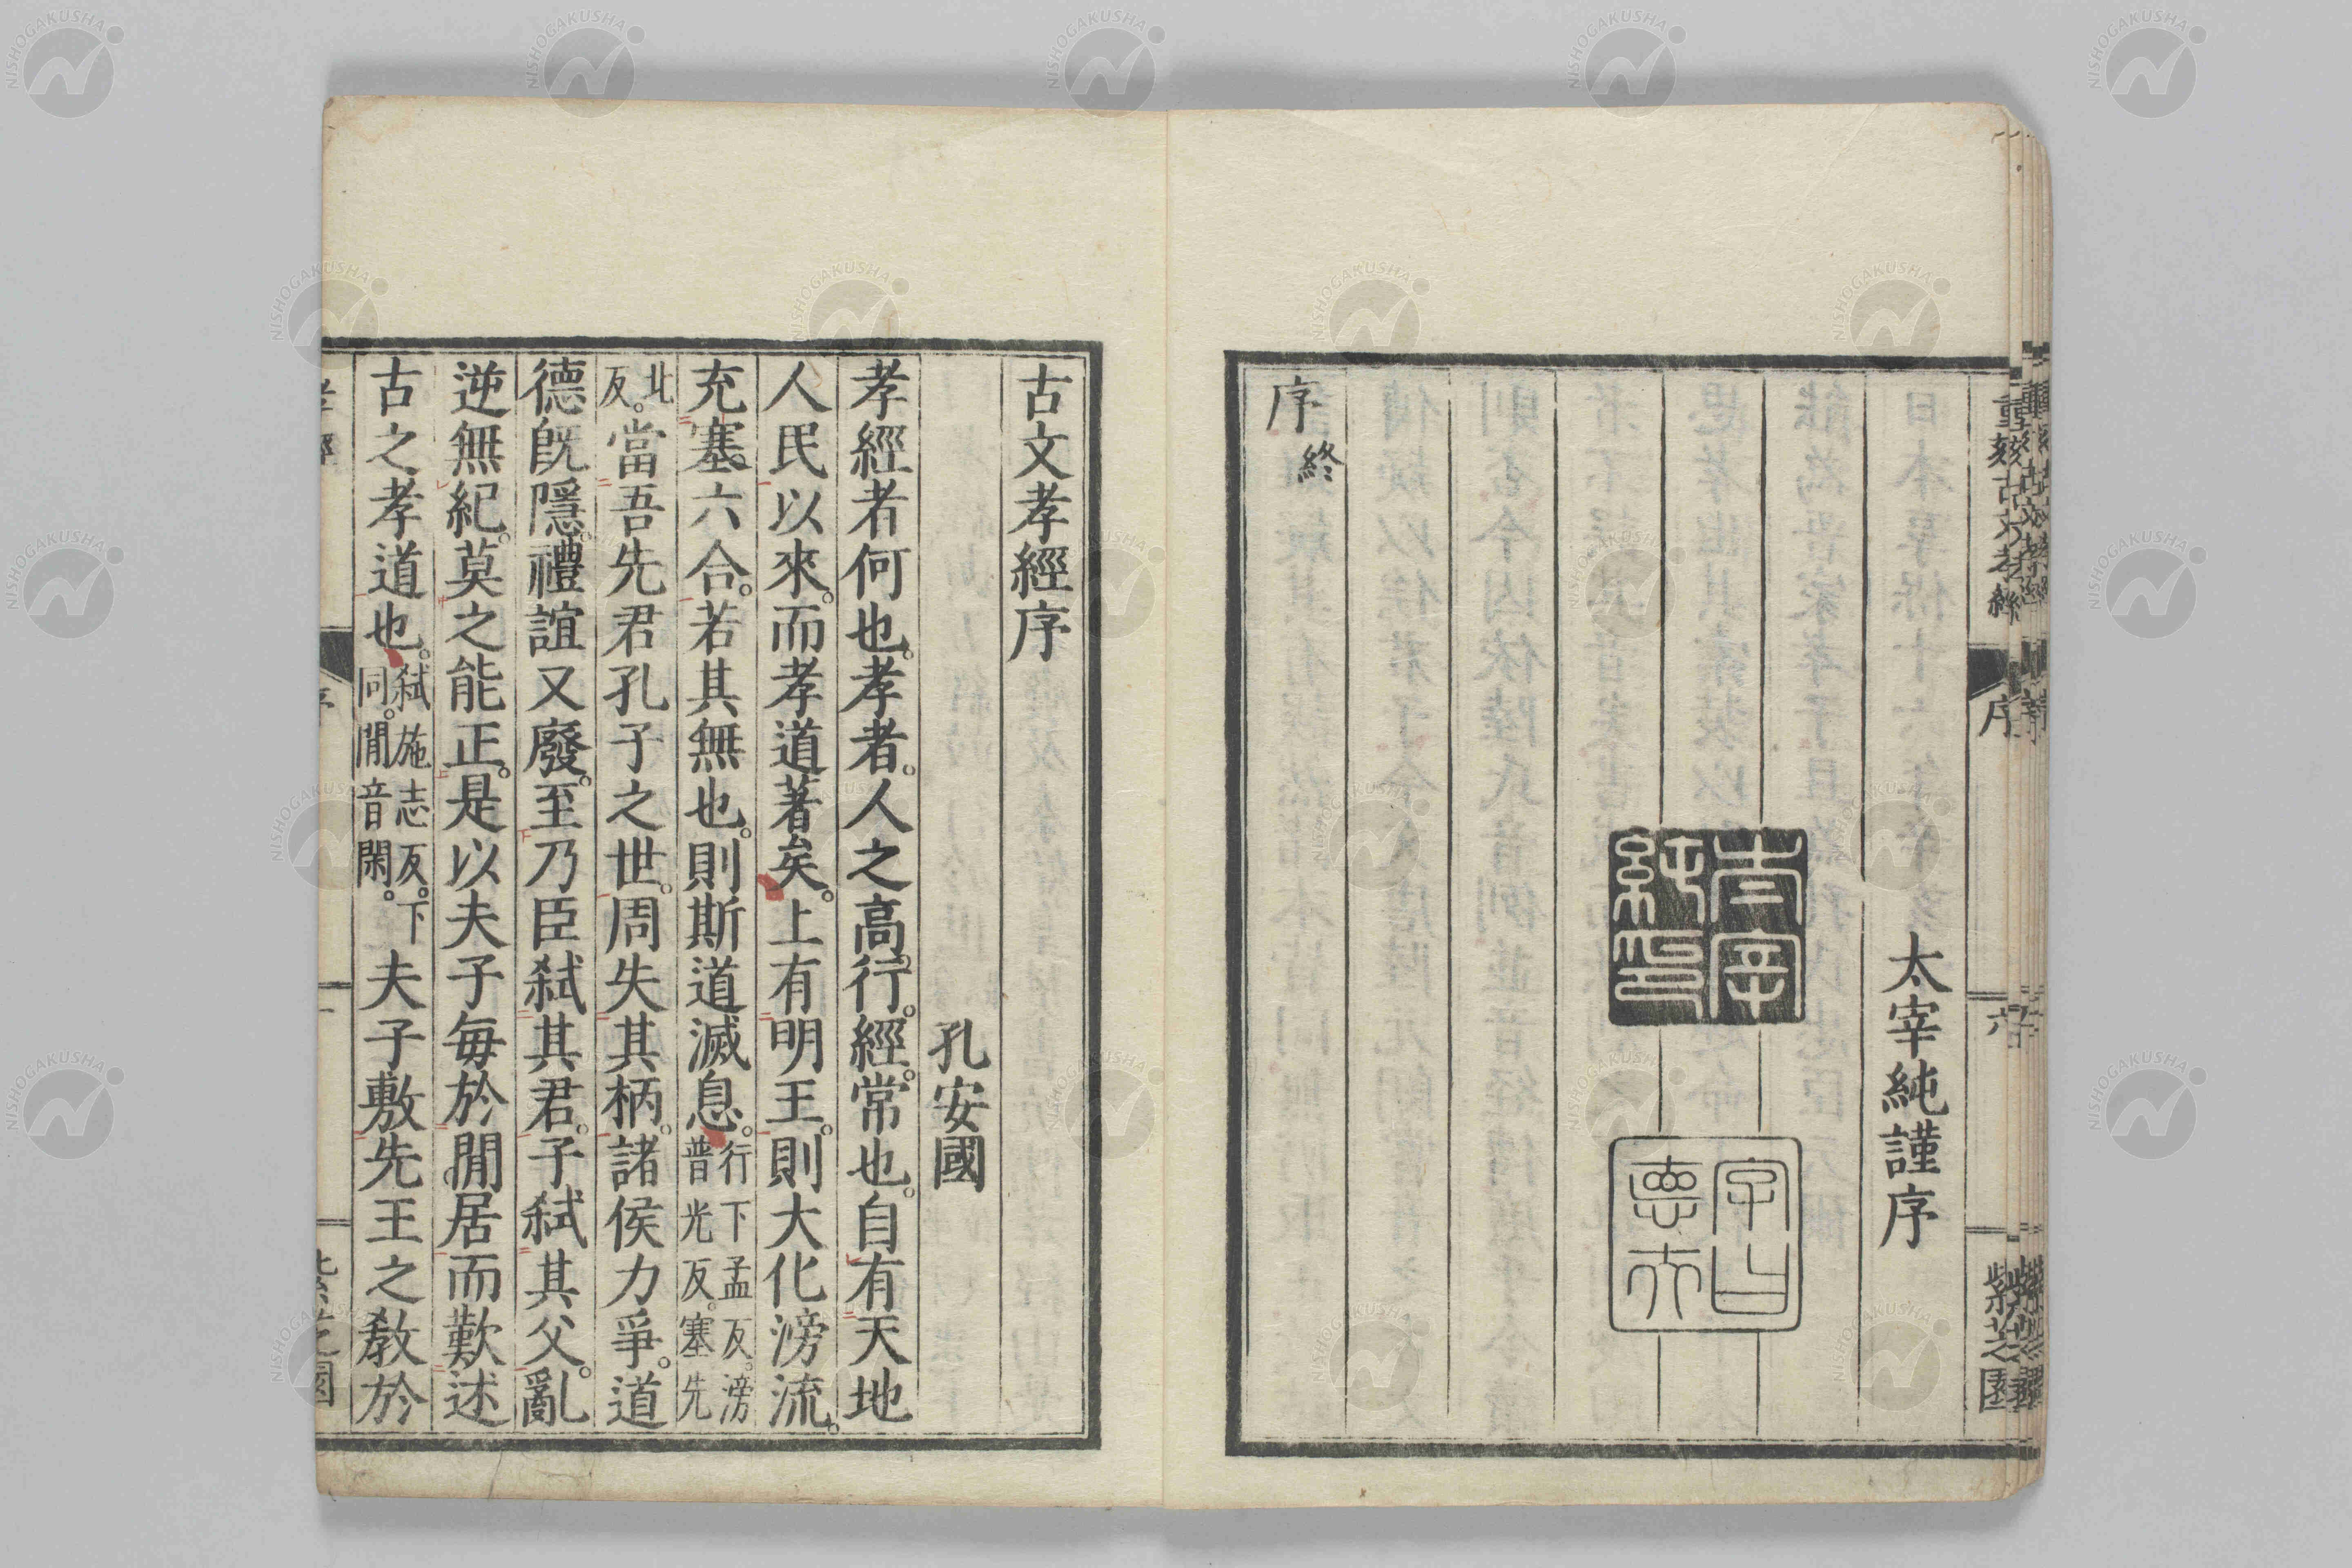 重刻古文孝經
序
六
紫芝園
太宰純謹序
太宰純印
字曰德夫
序終
古文孝經序
孔安國
孝經者何也。孝者。人之高行。經。常也。自有天地
人民以來。而孝道著矣。上有明王。則大化滂流。
充塞六合。若其無也。則斯道滅息。行下孟反。滂普光反。塞先
北反。當吾先君孔子之世。周失其柄。諸侯力爭。道
德旣隱。禮誼又廢。至乃臣弑其君。子弑其父。亂
逆無紀。莫之能正。是以夫子每於閒居而歎述
古之孝道也。弑施志反。下同。閒音閑。夫子敷先王之敎於
NISHOGAKUSHA